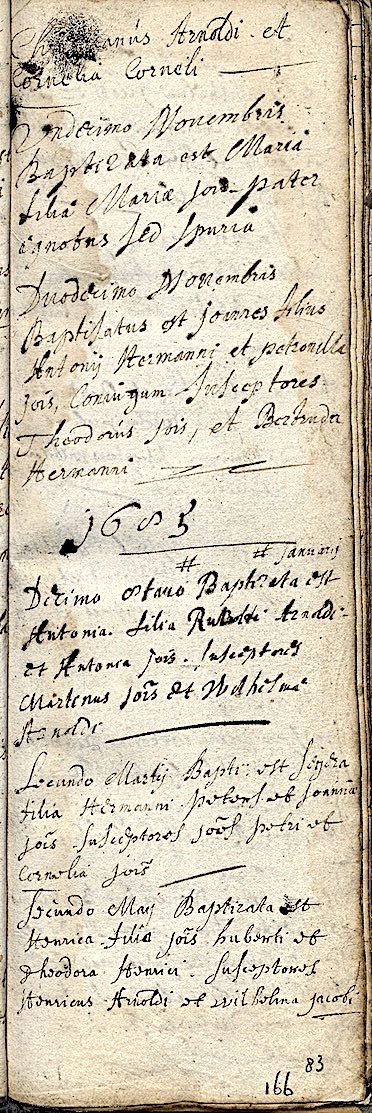 Arnoldi et
Cornelia Corneli
Undecimo Novembris
Baptizata est Maria
filia Mariæ Jois pater
ignotus sed spuria
Duodecimo Novembris
Baptisatus est Joannes filius
Antonij Hermanni et petronilla
Jois, Coniugum Susceptores
Theodorus Jois, et Bertruda
Hermanni
1685
# # Januarij
Decimo octavo Baptizata est
Antonia filia Arnoldi
et Antonia Jois. Susceptores
Martinus Jois et Wilhelma
Arnoldi
Secundo Martij Bapti: est
filia Hermanni peters et Joanna
Jois Susceptores Jois petri et
Cornelia Jois
Secundo Maij Baptizata est
Henrica filia Jois huberti et
Theodora Henrici Susceptores
Henricus Arnoldi et wilhelma Jacobi
83
166